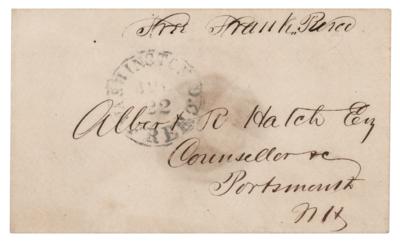 Free Frank. Pierce
WASHINGTON D.C.
22
FREE
Albert R Hatch Esq
Counsellor &c
Portsmouth
NH